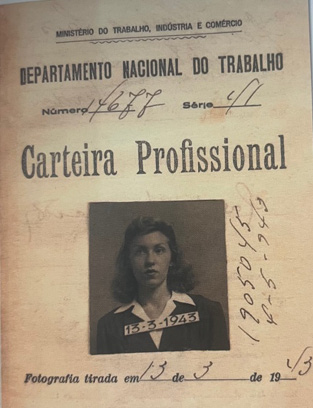 MINISTÉRIO DO TRABALHO, INDÚSTRIA E COMÉRCIO
DEPARTAMENTO NACIONAL DO TRABALHO
Número 14677 Série 41
Carteira Profissional
13-3-1943
Fotografia tirada em 13 de 3 de 19 43